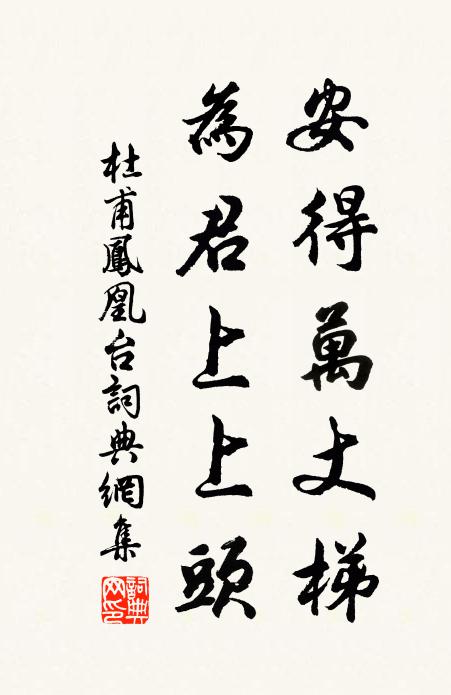 安得萬丈梯
為君上上頭
杜甫鳳凰台詞典網集
詞典網印